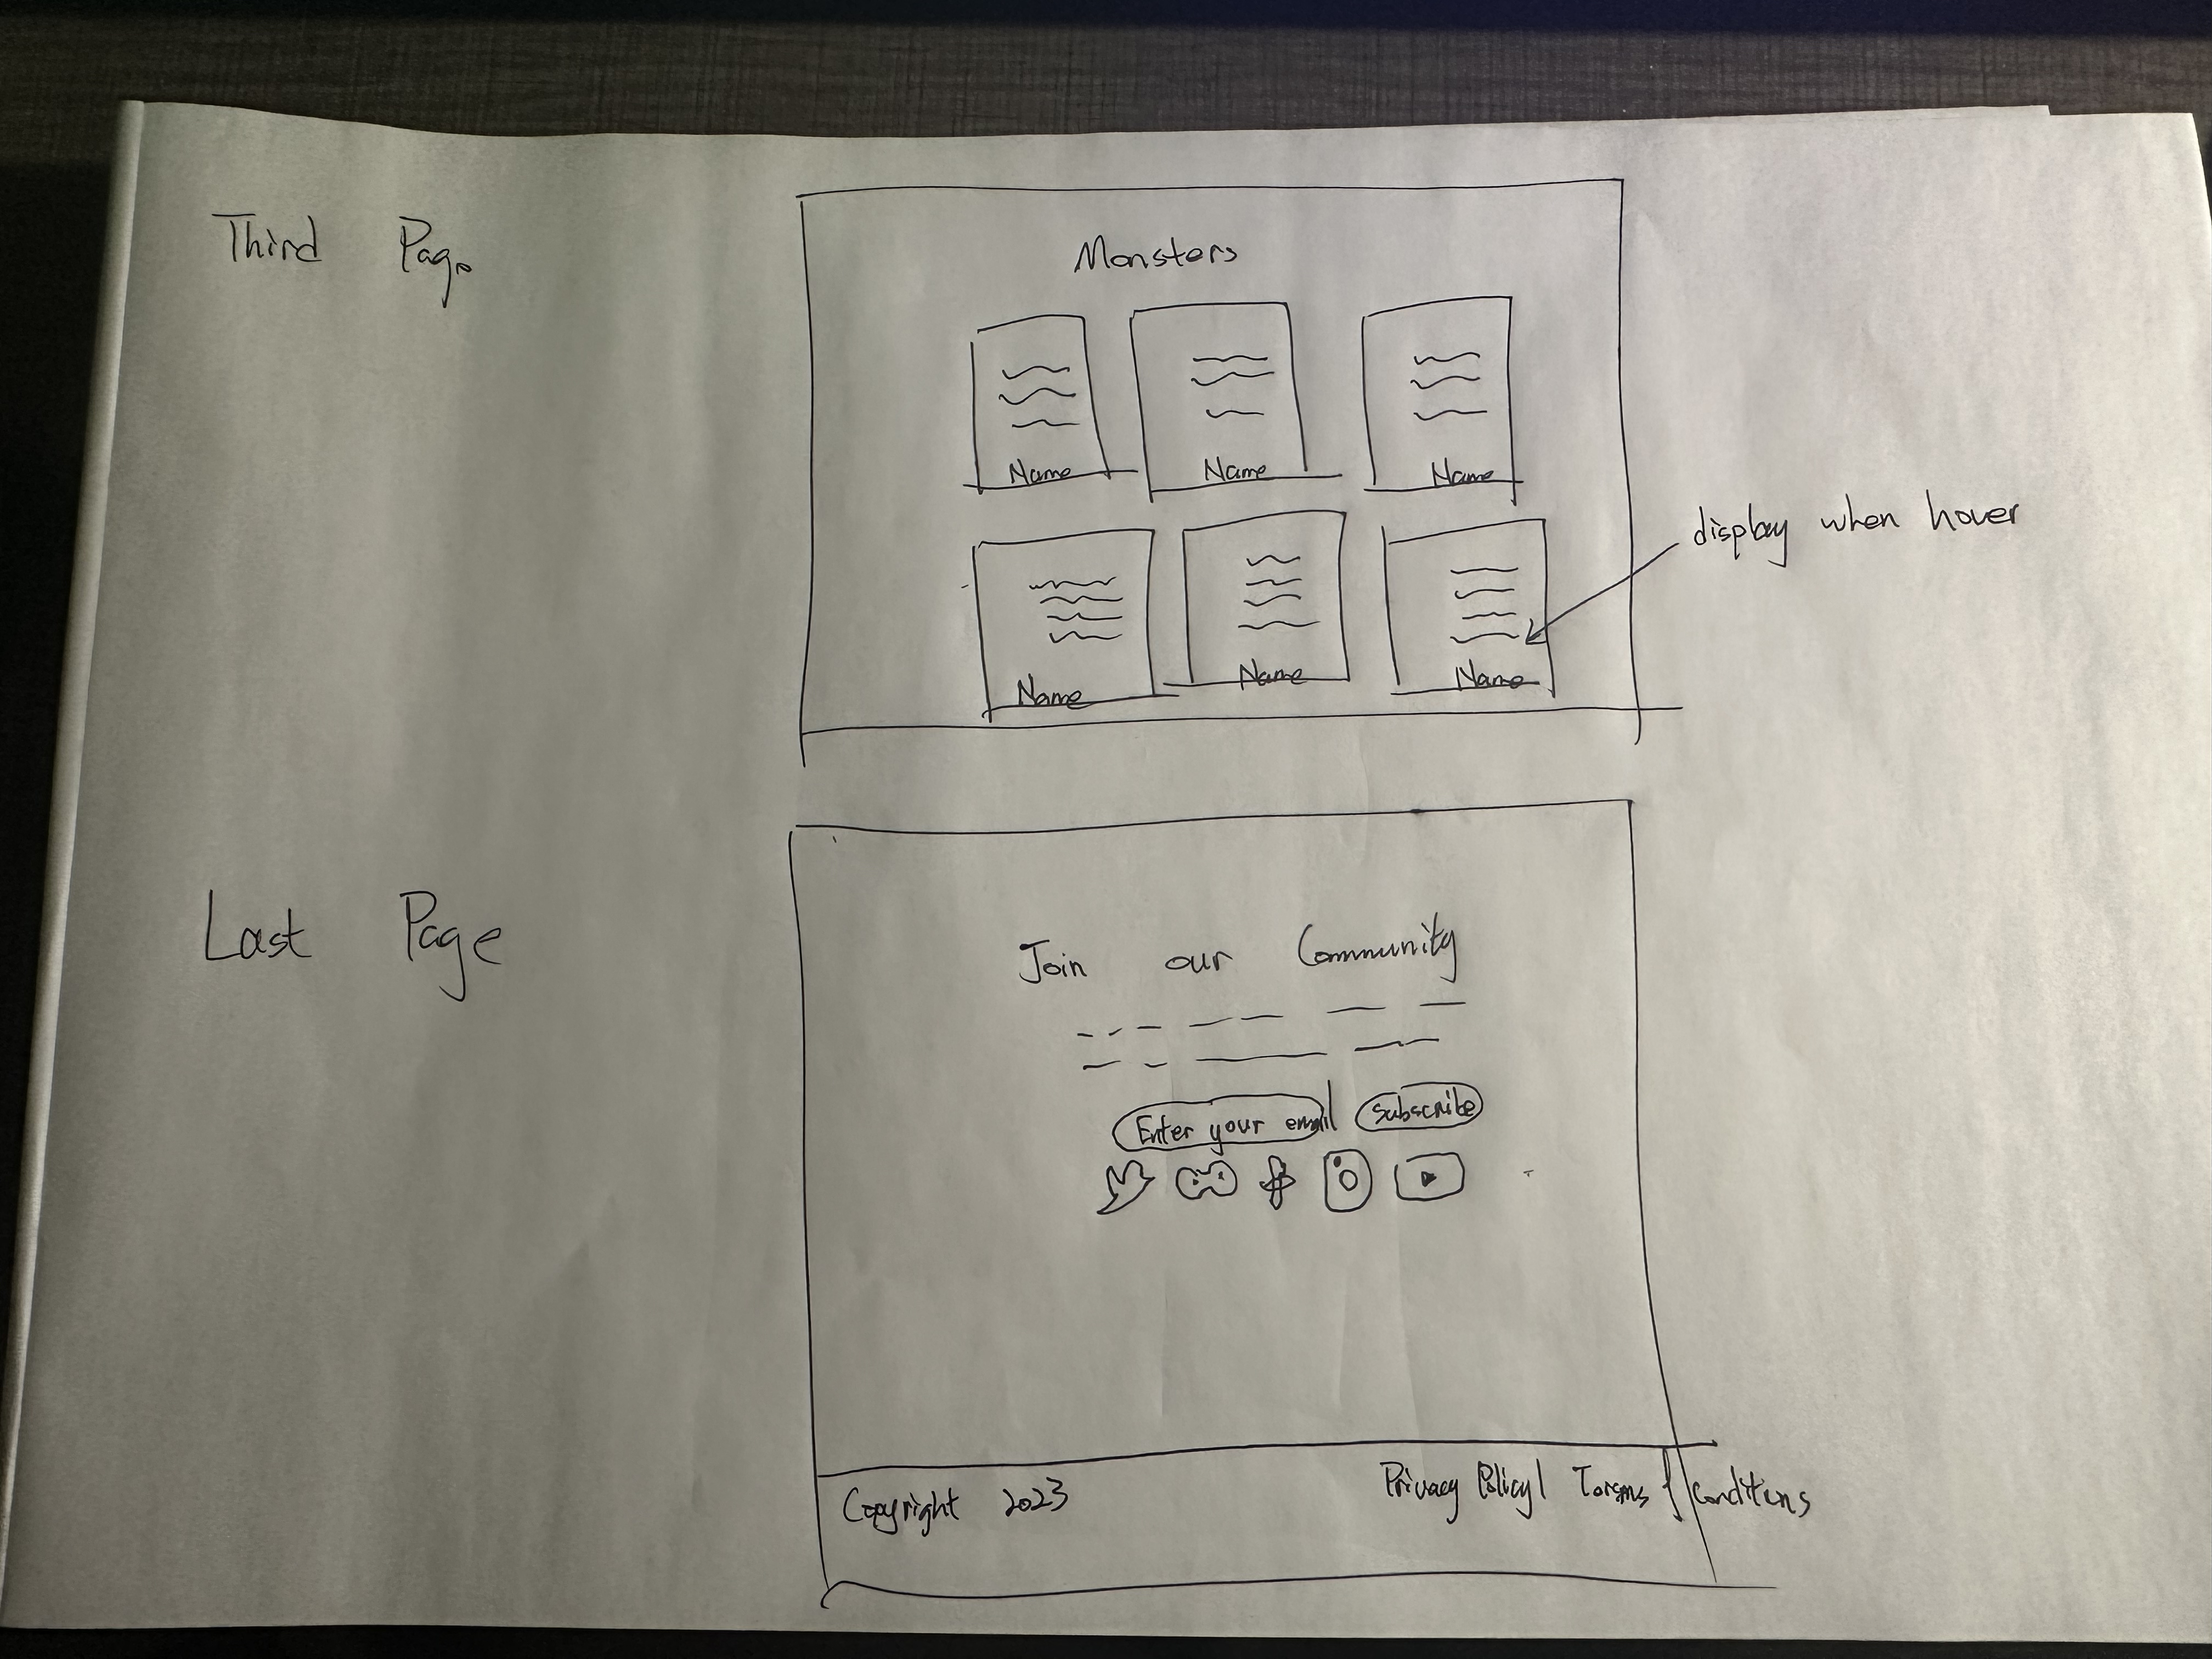 Third Page
Monsters
Name Name Name
display when hover
Name Name Name
Last Page
Join our Community
Enter your email Subscribe
Copyright 2023 Privacy Policy | & Conditions